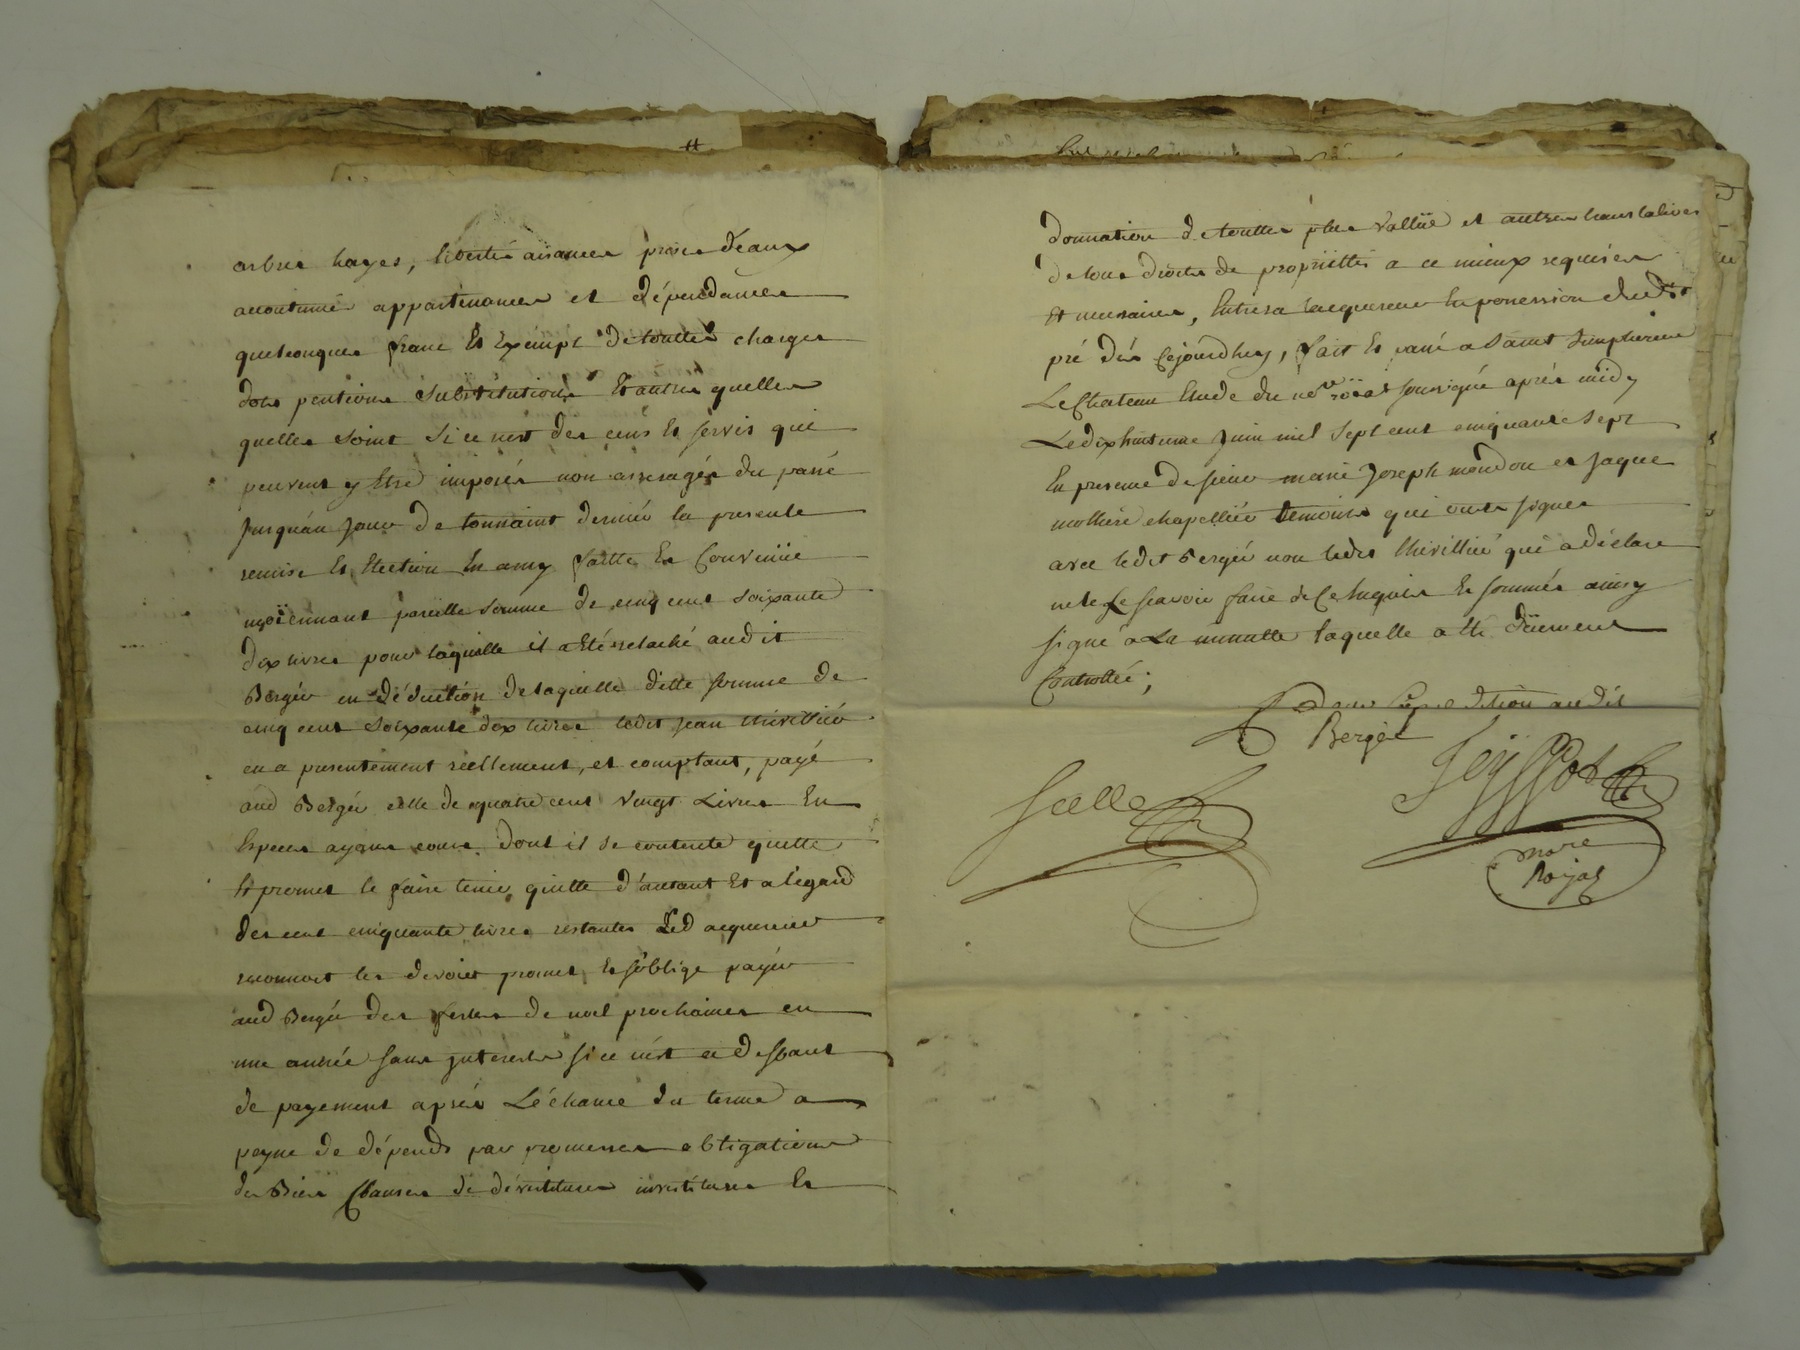 arbres hayes, libertés aisances prises d'eaux
accoutumés appartenances et dépendances
quelconques franc Et Exempt detouttes charges
dots pentions substitutions Et autres quelles
quelles soint si ce nest des cens Et servis qui
peuvent y Etre imposés non arreragés du passé
jusquau jour de toussaint dernié la presente
remise Et Election En amy faitte Et Convenüe
moÿennant pareille somme de cinq cent soixante
dix livres pour laquelle il a Eté relaché audit
Bergér en déduction de laquelle ditte somme de
cinq cent soixante dix livres ledit jean thivillier
en a presentement réellement, et comptant, payé
aud Bergér celle de quatre cent vingt Livres En
Especes ayant cours dont il se contente quitte
Et promet le faire tenir quitte d'autant Et a legard
des cent cinquante livres restantes Led acquereur
reconnoit les devoir promet Et s'oblige payér
aud Bergér des festes de noel prochaines en
une année sans interests si ce n'est a deffaut
de payement aprés Lé'chance du terme a
peyne de dépends par promesses obligations
de Biens Clauses de dévestitures investitures Et
donnation detouttes plus vallüe et autres translatives
de tous droits de propriettés a ce mieux requises
Et necessaires, Entrera lacquereur En possession dud
pré dés Cejourdhuy, fait Et passé a Saint Simphorien
Le Chateau Etude du no.re roïal soussigné aprés midy
Le dix huit juin mil sept cent cinquante sept
En presence de sieur marie joseph moudon et jaque
mollière chapellier temoins qui ont signes
avec ledit Bergér non ledit thivillier qui a déclaré
ne le scavoir faire de Ce Enquis Et sommés ainsy
signé a La minutte laquelle a Eté düement
Controllée;
pour Expedition audit
Bergér
Scellé
Teÿssot
no.re
Royal